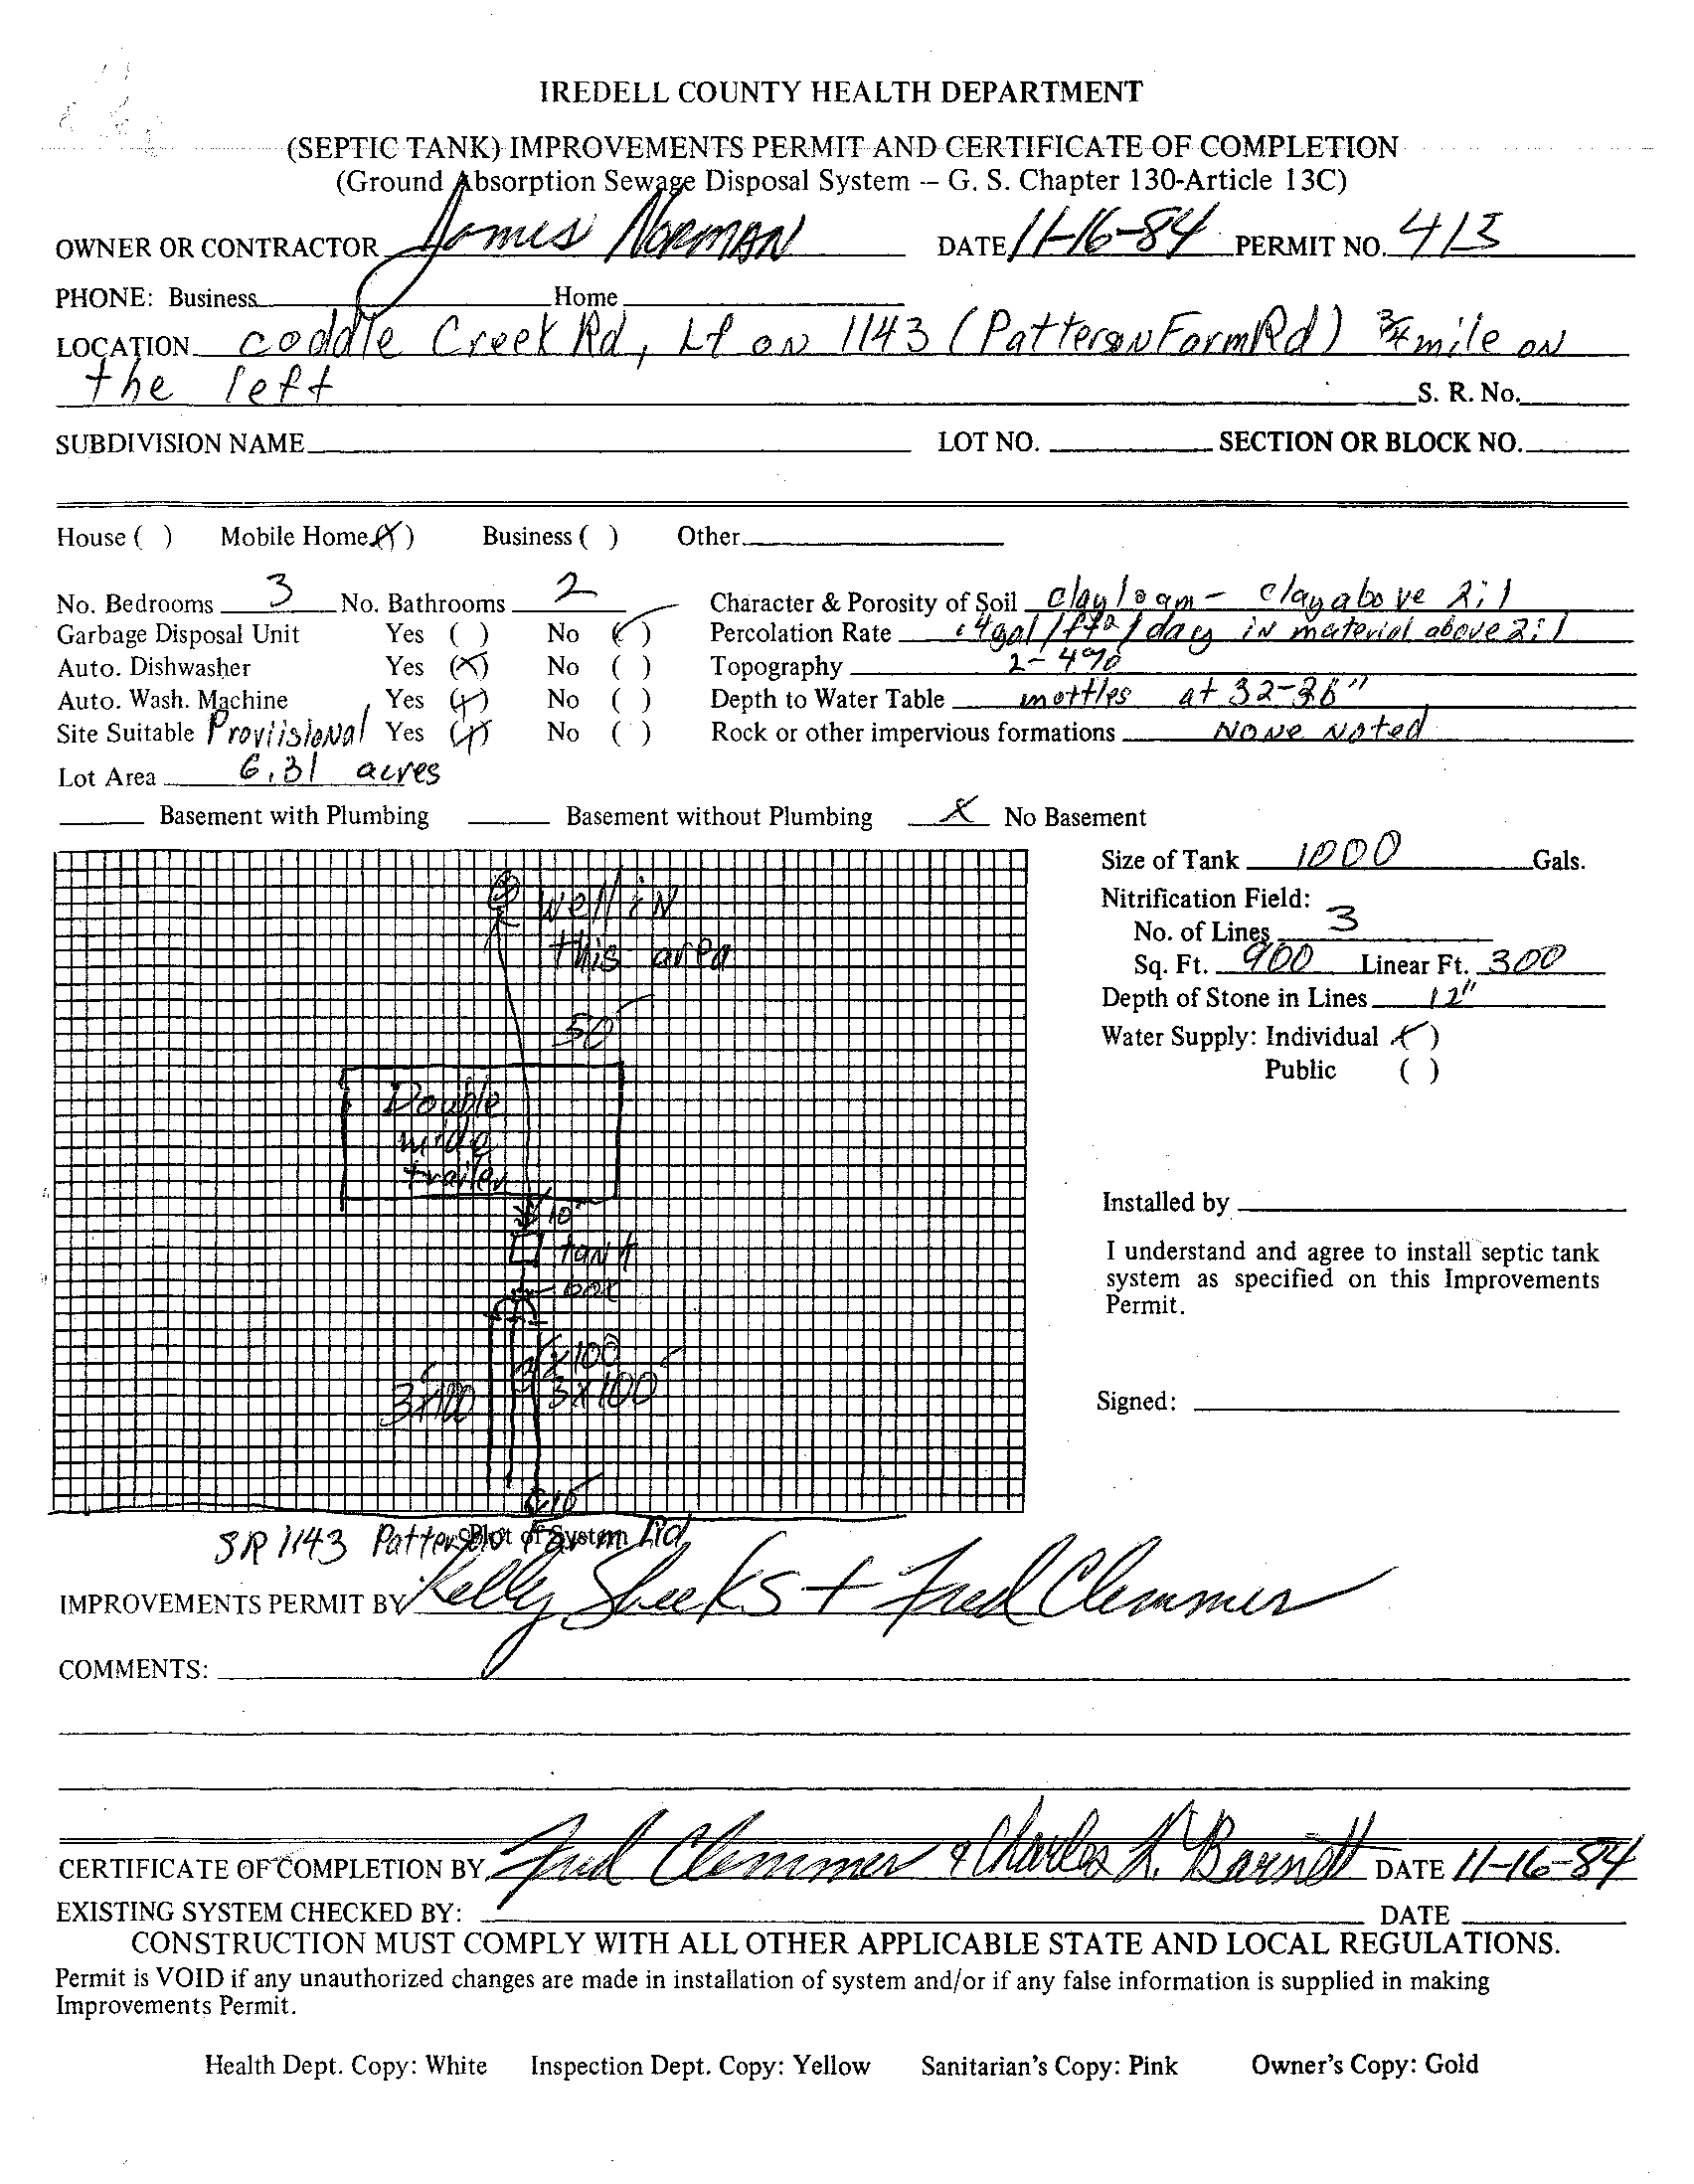 IREDELL COUNTY HEALTH DEPARTMENT
(SEPTIC TANK) IMPROVEMENTS PERMIT AND CERTIFICATE OF COMPLETION
(Ground Absorption Sewage Disposal System – G. S. Chapter 130-Article 13C)
OWNER OR CONTRACTOR James Norman DATE 11-16-84 PERMIT NO. 413
PHONE: Business Home
LOCATION Coddle Creek Rd, Lf on 1143 (Patterson Farm Rd) 3/4 mile on
the left S. R. No.
SUBDIVISION NAME LOT NO. SECTION OR BLOCK NO.
House ( ) Mobile Home (X) Business ( ) Other
No. Bedrooms 3 No. Bathrooms 2 Character & Porosity of Soil clay loam - clay above 2:1
Garbage Disposal Unit Yes ( ) No (✓) Percolation Rate .4gal/ft2/day in material above 2:1
Auto. Dishwasher Yes (X) No ( ) Topography 2-4%
Auto. Wash. Machine Yes (X) No ( ) Depth to Water Table mottles at 32-36"
Site Suitable Proviisional Yes (X) No ( ) Rock or other impervious formations None Noted
Lot Area 6.31 acres
Basement with Plumbing Basement without Plumbing X No Basement
Size of Tank 1000 Gals.
Nitrification Field:
No. of Lines 3
Sq. Ft. 900 Linear Ft. 300
Depth of Stone in Lines 12"
Water Supply: Individual (X)
Public ( )
Installed by
I understand and agree to install septic tank
system as specified on this Improvements
Permit.
Signed:
well in
this area
50'
Double
wide
trailer
10'
tank
box
3x100'
3x100'
3x100'
10'
SR 1143 Patterson Farm Rd
Plot of System
IMPROVEMENTS PERMIT BY Kelly Sheeks + Fred Clemmer
COMMENTS:
CERTIFICATE OF COMPLETION BY Fred Clemmer & Charles K. Barnett DATE 11-16-84
EXISTING SYSTEM CHECKED BY: DATE
CONSTRUCTION MUST COMPLY WITH ALL OTHER APPLICABLE STATE AND LOCAL REGULATIONS.
Permit is VOID if any unauthorized changes are made in installation of system and/or if any false information is supplied in making
Improvements Permit.
Health Dept. Copy: White Inspection Dept. Copy: Yellow Sanitarian's Copy: Pink Owner's Copy: Gold